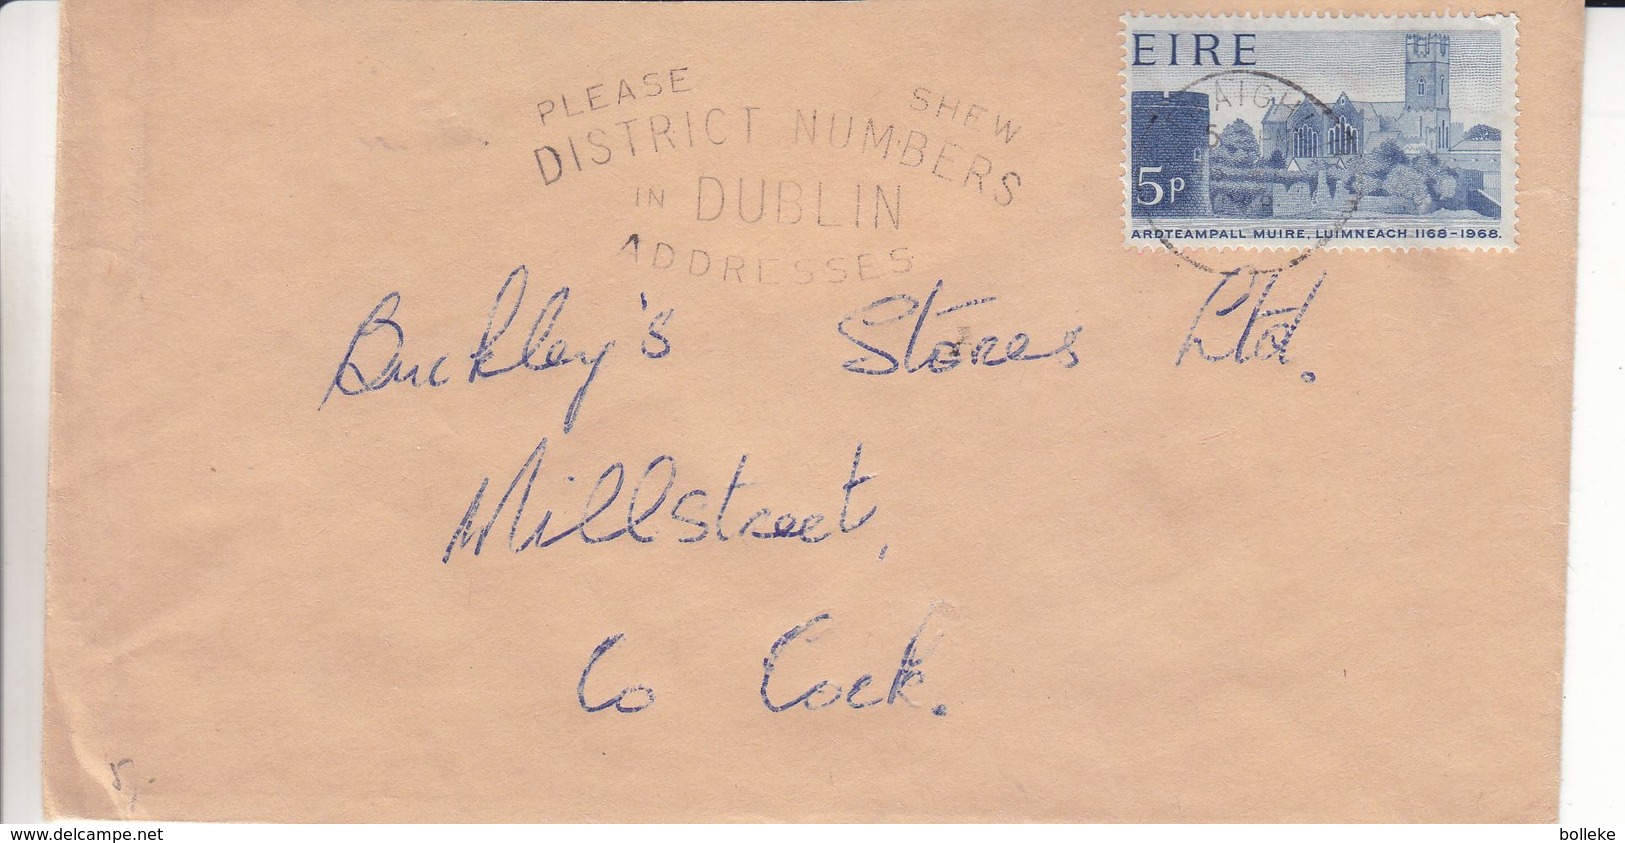 PLEASE SHEW
DISTRICT NUMBERS
IN DUBLIN
ADDRESSES
EIRE
5p
ARDTEAMPALL MUIRE, LUIMNEACH 1168-1968.
Buckley's Stores Ltd.
Millstreet,
Co Cork.
5,-
www.delcampe.net
bolleke